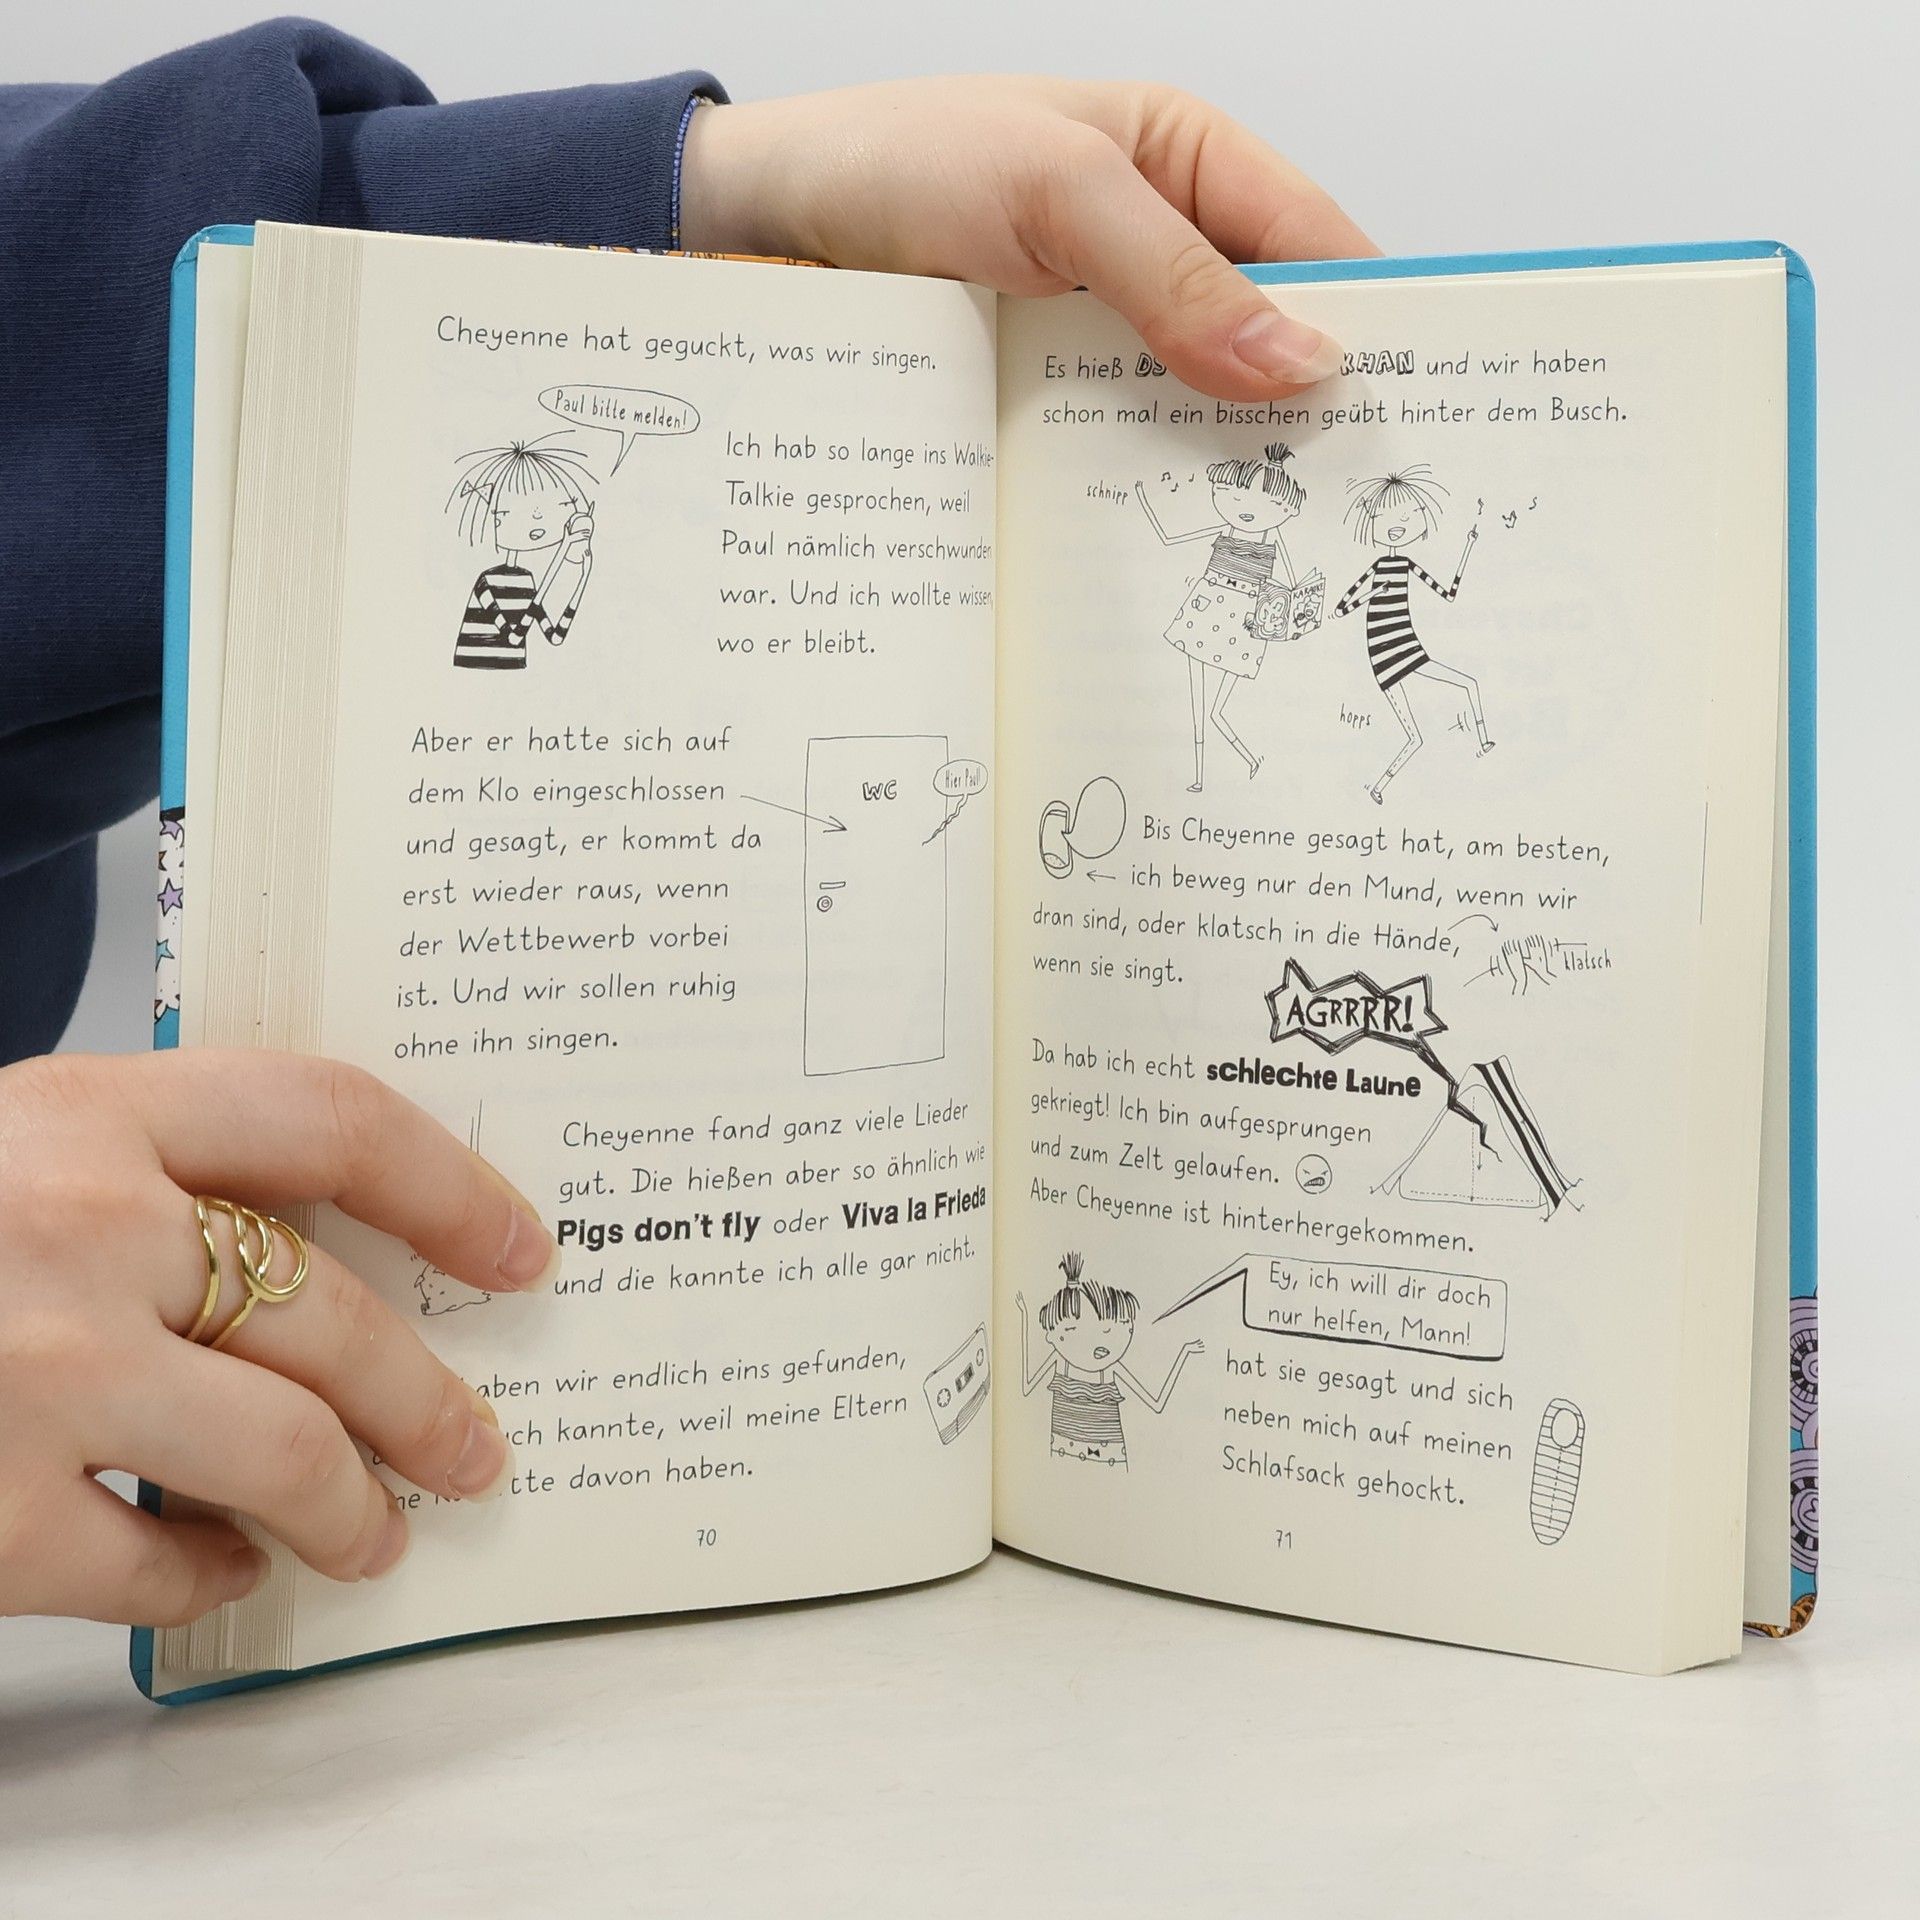 Cheyenne hat geguckt, was wir singen.
Paul bitte melden!
Ich hab so lange ins Walkie-
Talkie gesprochen, weil
Paul nämlich verschwunden
war. Und ich wollte wissen,
wo er bleibt.
Aber er hatte sich auf
dem Klo eingeschlossen
und gesagt, er kommt da
erst wieder raus, wenn
der Wettbewerb vorbei
ist. Und wir sollen ruhig
ohne ihn singen.
WC
Hier Paul!
Cheyenne fand ganz viele Lieder
gut. Die hießen aber so ähnlich wie
Pigs don't fly oder Viva la Frieda
und die kannte ich alle gar nicht.
wir endlich eins gefunden,
kannte, weil meine Eltern
davon haben.
70
Es hieß KHAN und wir haben
schon mal ein bisschen geübt hinter dem Busch.
schnipp
KARAOKE
hopps
Bis Cheyenne gesagt hat, am besten,
ich beweg nur den Mund, wenn wir
dran sind, oder klatsch in die Hände,
wenn sie singt.
klatsch
AGRRRR!
Da hab ich echt schlechte Laune
gekriegt! Ich bin aufgesprungen
und zum Zelt gelaufen.
Aber Cheyenne ist hinterhergekommen.
Ey, ich will dir doch
nur helfen, Mann!
hat sie gesagt und sich
neben mich auf meinen
Schlafsack gehockt.
71